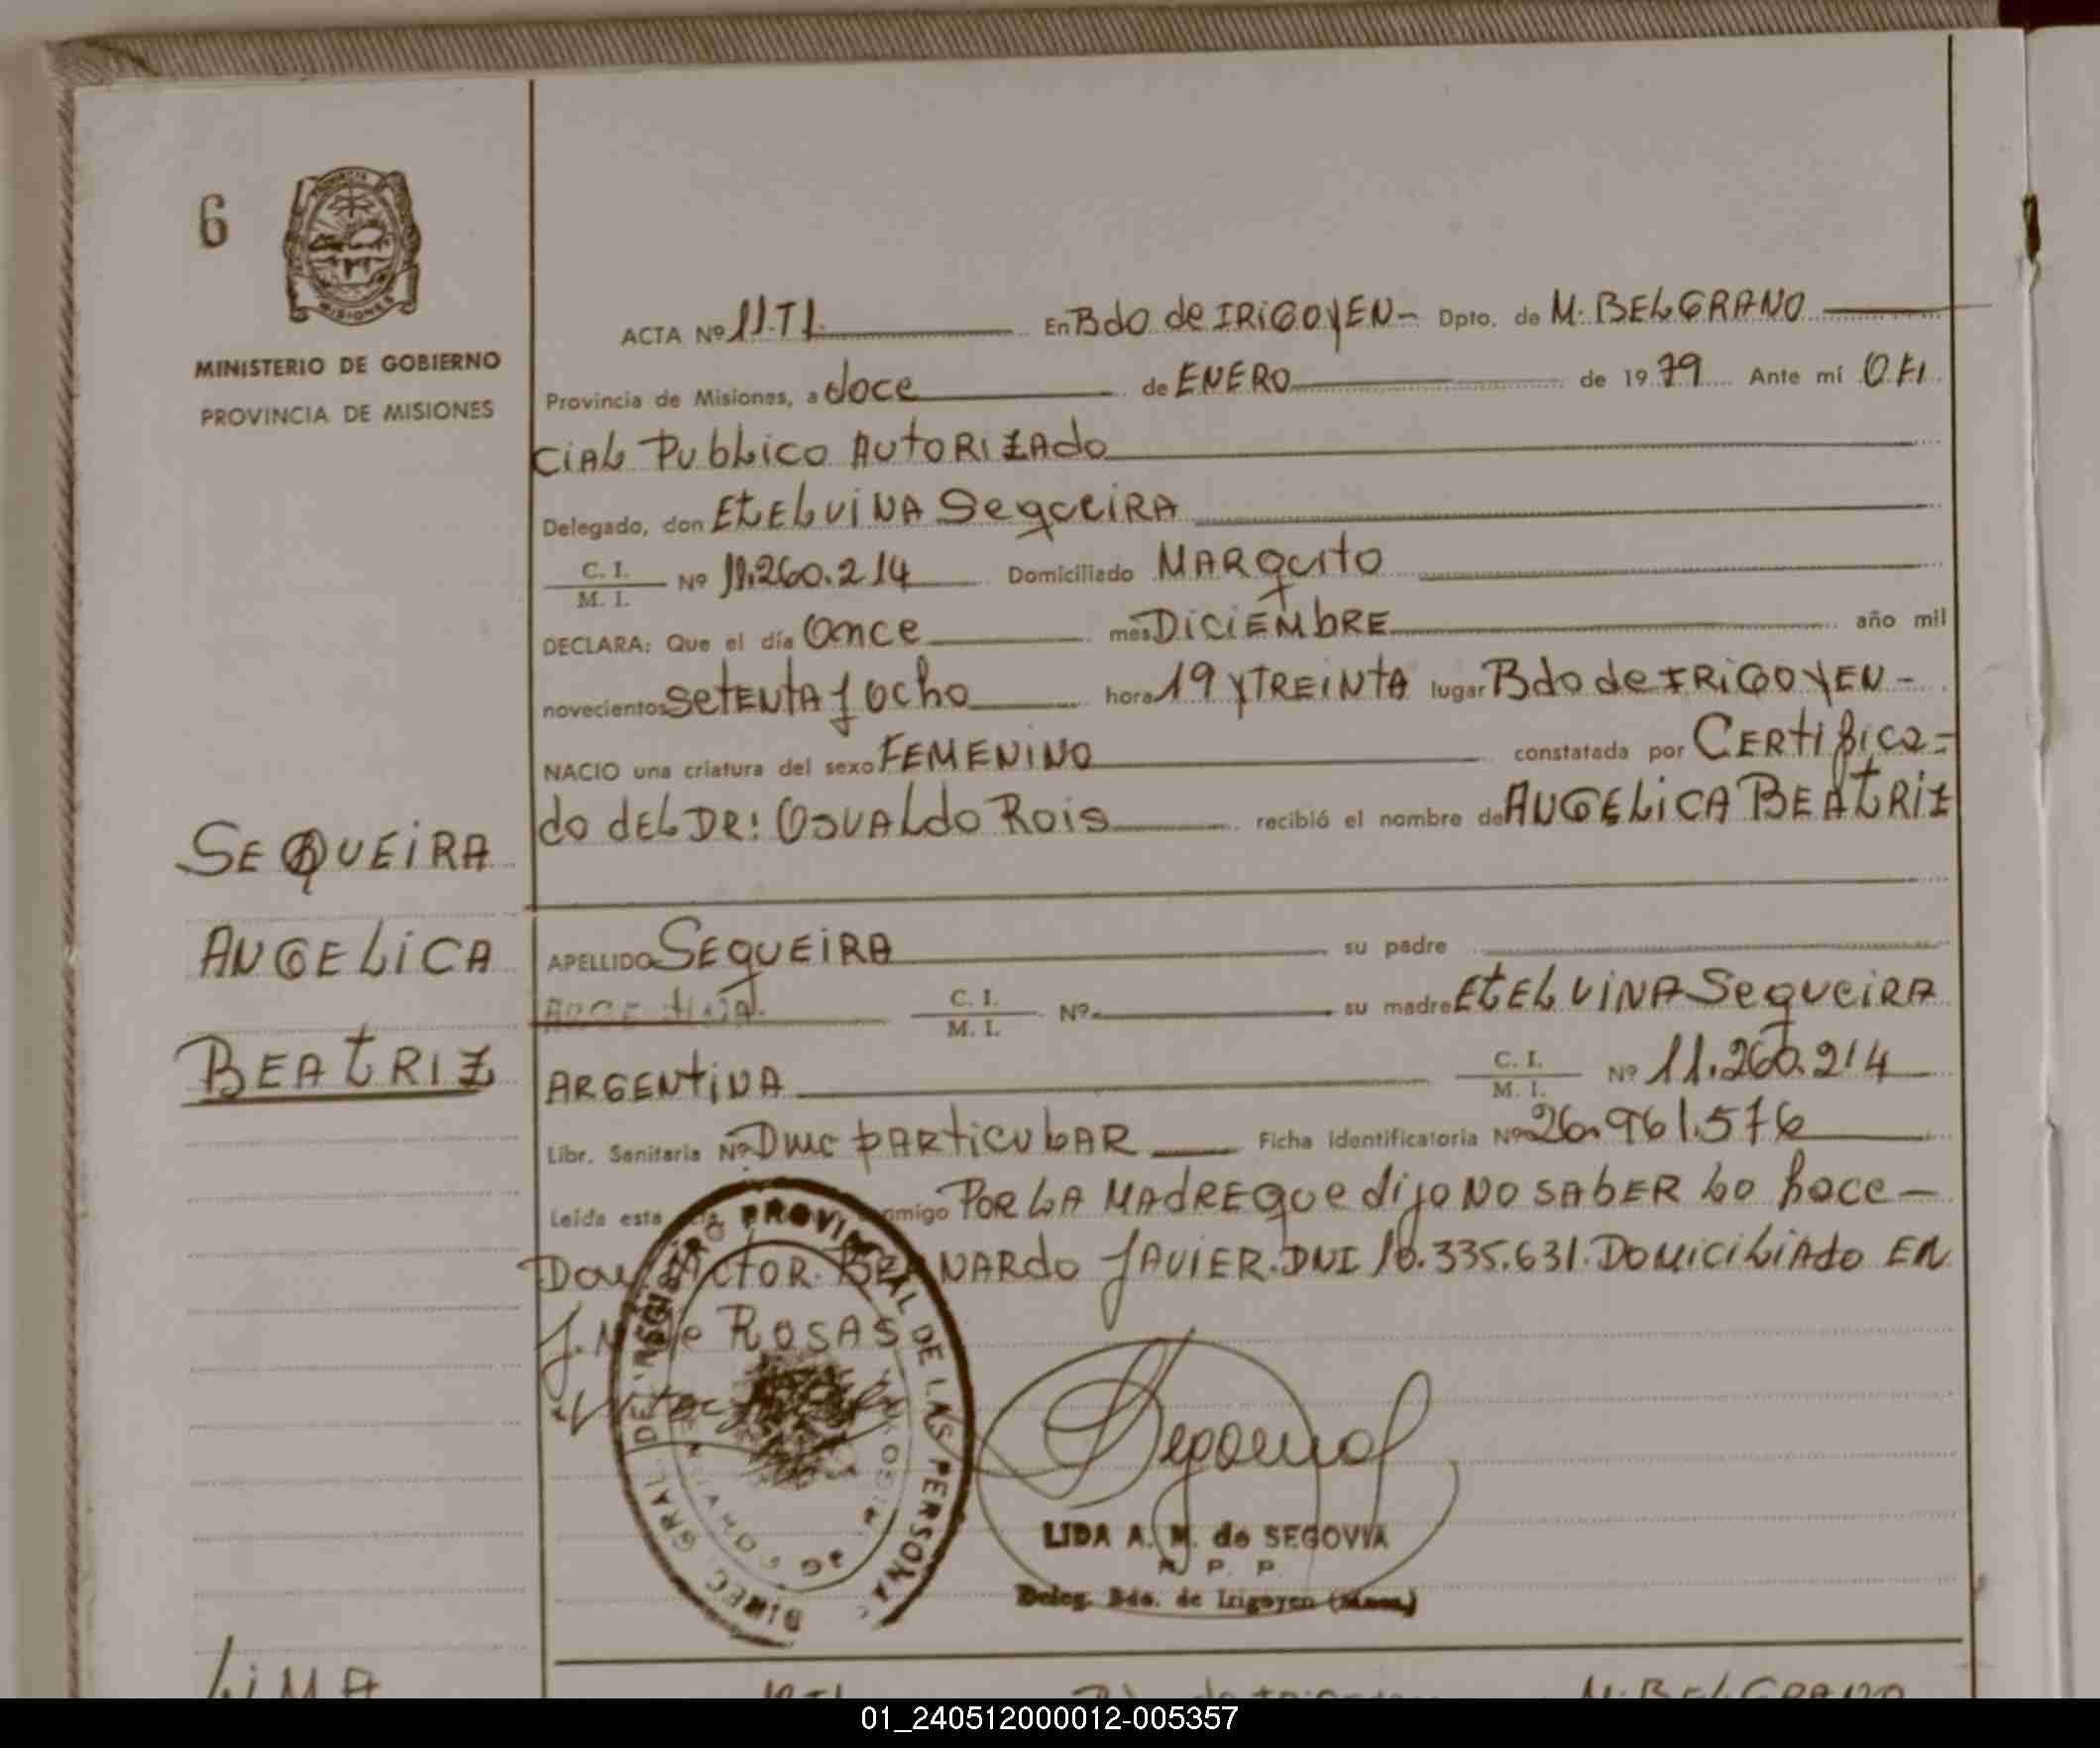 6
MINISTERIO DE GOBIERNO
PROVINCIA DE MISIONES
SEQUEIRA
ANGELICA
BEATRIZ
ACTA Nº 11.TI. En Bdo de IRIGOYEN- Dpto. de M. BELGRANO
Provincia de Misiones, a doce de ENERO de 1979 Ante mí OFI
CIAL PUBLICO AUTORIZADO
Delegado, don ETELVINA SEQUEIRA
C. I. / M. I. Nº 11.260.214 Domiciliado MARQUITO
DECLARA: Que el día Once mes DICIEMBRE año mil
novecientos SETENTA y Ocho hora 19 y TREINTA lugar Bdo de IRIGOYEN-
NACIO una criatura del sexo FEMENINO constatada por CERTIFICA-
do DEL DR: OSVALDO ROIS recibió el nombre de ANGELICA BEATRIZ
APELLIDO SEQUEIRA su padre
C. I. / M. I. Nº su madre ETELVINA SEQUEIRA
ARGENTINA C. I. / M. I. Nº 11.260.214
Libr. Sanitaria Nº Dmc PARTICULAR Ficha Identificatoria Nº 26.961.576
Leída esta conmigo POR LA MADRE que dijo NO SABER LO hace-
BERNARDO JAVIER. DNI 10.335.631. DOMICILIADO EN
J. M. de ROSAS
DIREC GRAL DEL REGISTRO PROVINCIAL DE LAS PERSONAS
Segovia
LIDA A. M. de SEGOVIA
P. P.
Deleg. Bdo. de Irigoyen (Mnes.)
LIMA
M. BELGRANO
01_240512000012-005357